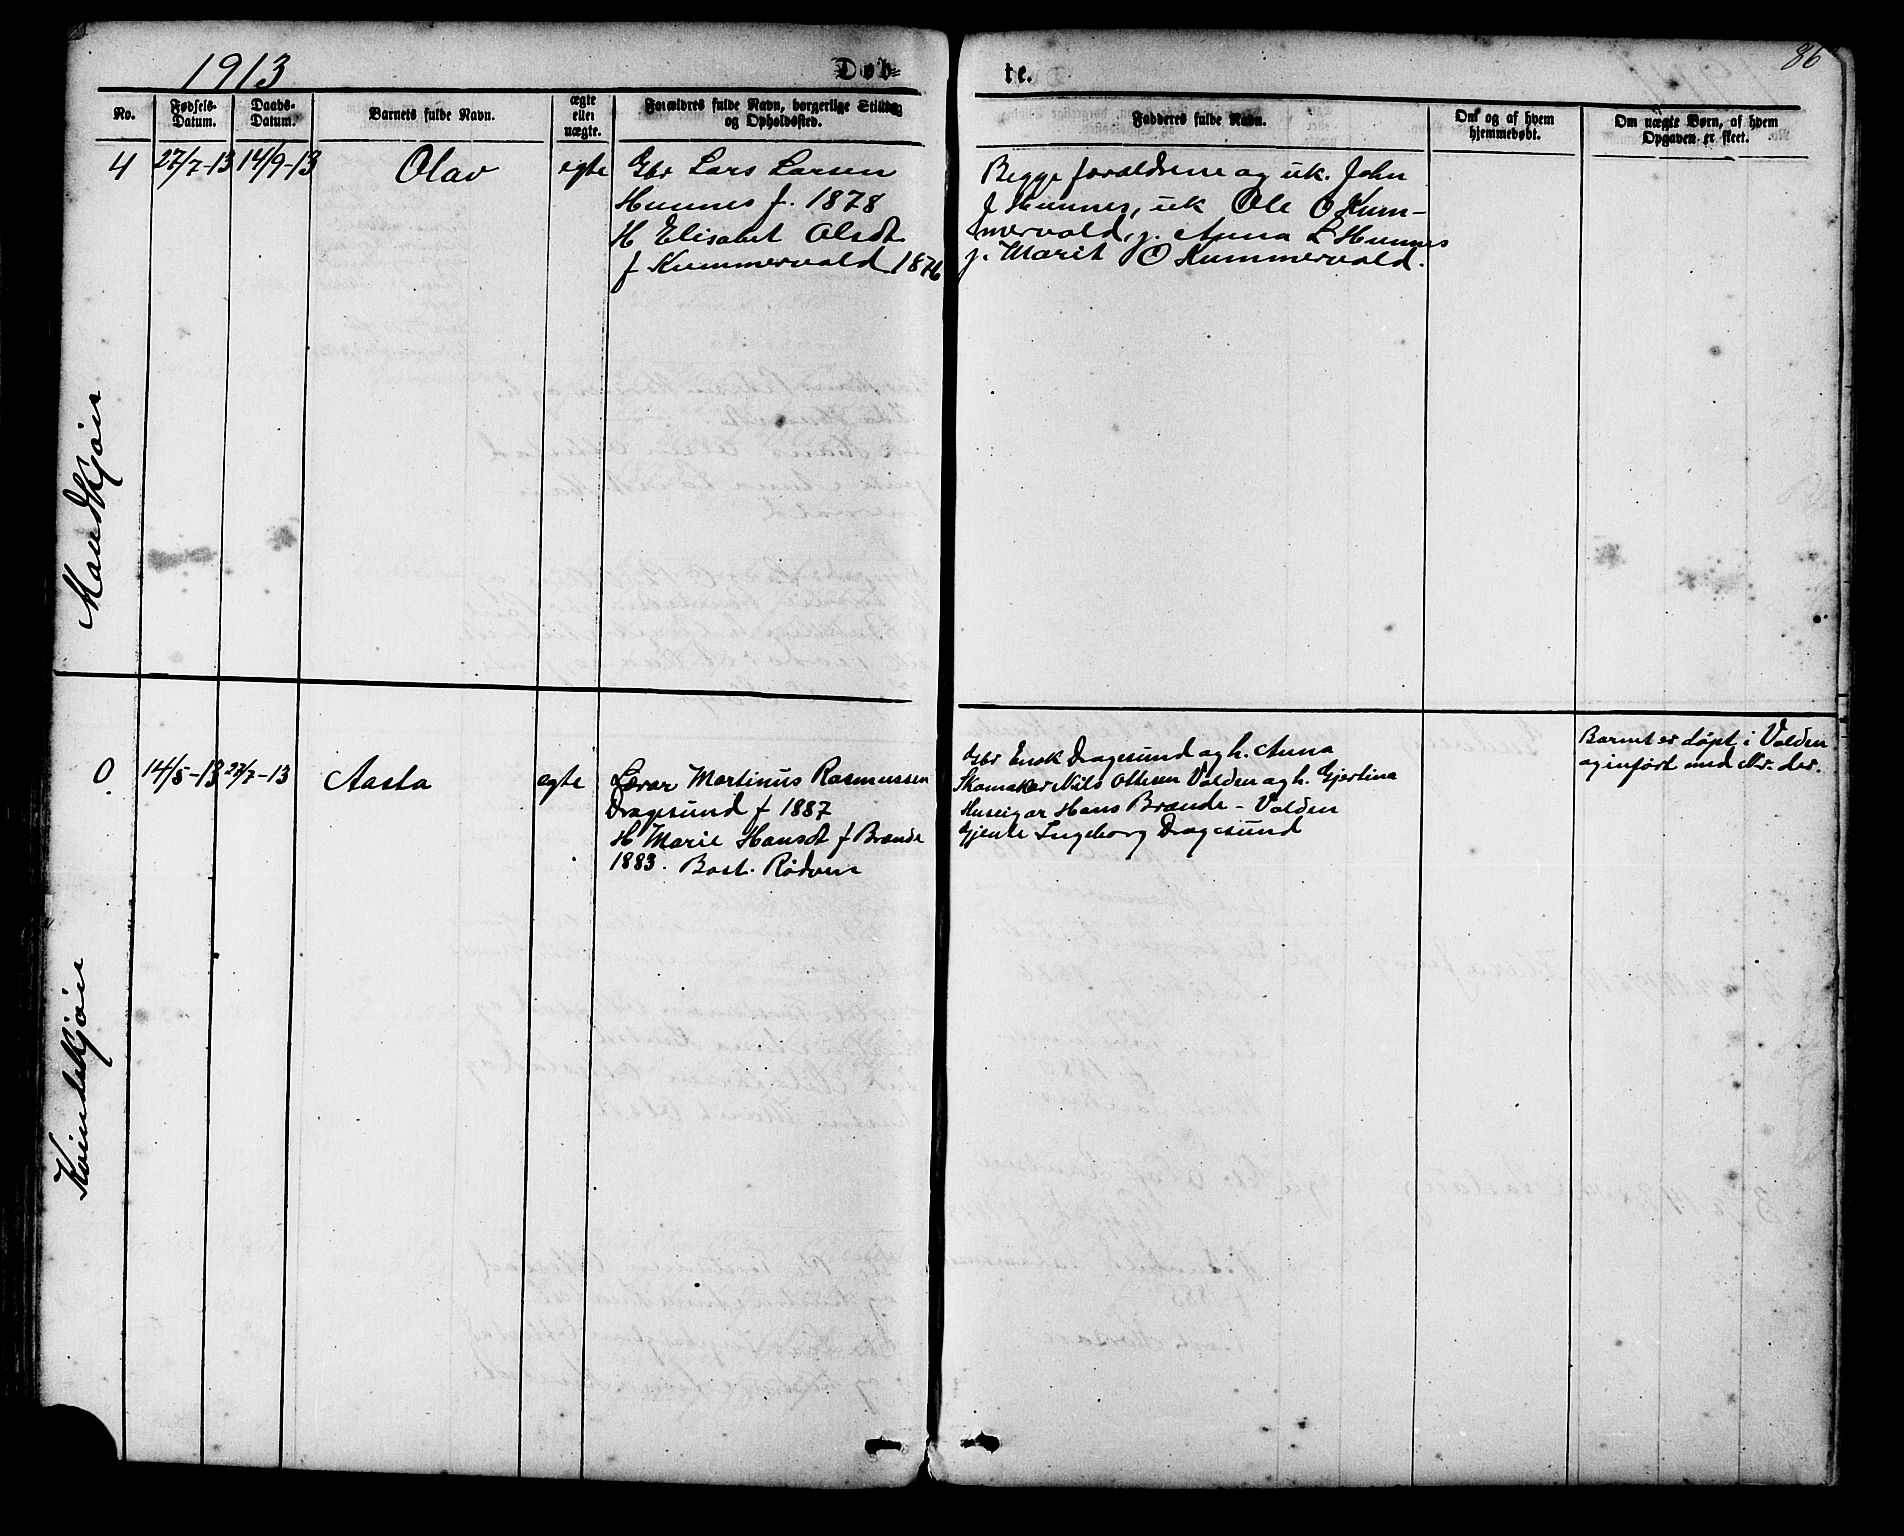 1913
Døb=
te.
86
No.
Fødsels-
Datum.
Daabs-
Datum.
Barnets fulde Navn.
ægte
eller
uægte.
Forældres fulde Navn, borgerlige Stilling
og Opholdssted.
Fadderes fulde Navn.
Om og af hvem
hjemmedøbt.
Om uægte Børn, af hvem
Opgaven er skeet.
Mandkjøn
4 27/7-13 14/9-13 Olav egte
Gbr Lars Larsen
Hunnes f. 1878
H Elisabet Olsdt
f Kummervold 1876
Begge foreldrene og uk. John
J Hunnes, uk Ole O Kum-
mervold, j. Anna L Hunnes
j. Marit O Kummervold.
Kvindekjøn
0. 14/5-13 27/7-13 Aasta egte
Lærar Martinus Rasmussen
Dragesund f 1887
H Marie Hansdt f Brænde
1883. Bost. Rødven
Gbr Enok Dragesund og h. Anna
Skomaker Nils Ottesen Volden og h. Gjertina
Huseigar Hans Brænde - Volden
Gjente Ingeborg Dragesund
Barnet er døpt i Volden
og infört med Nr. der.